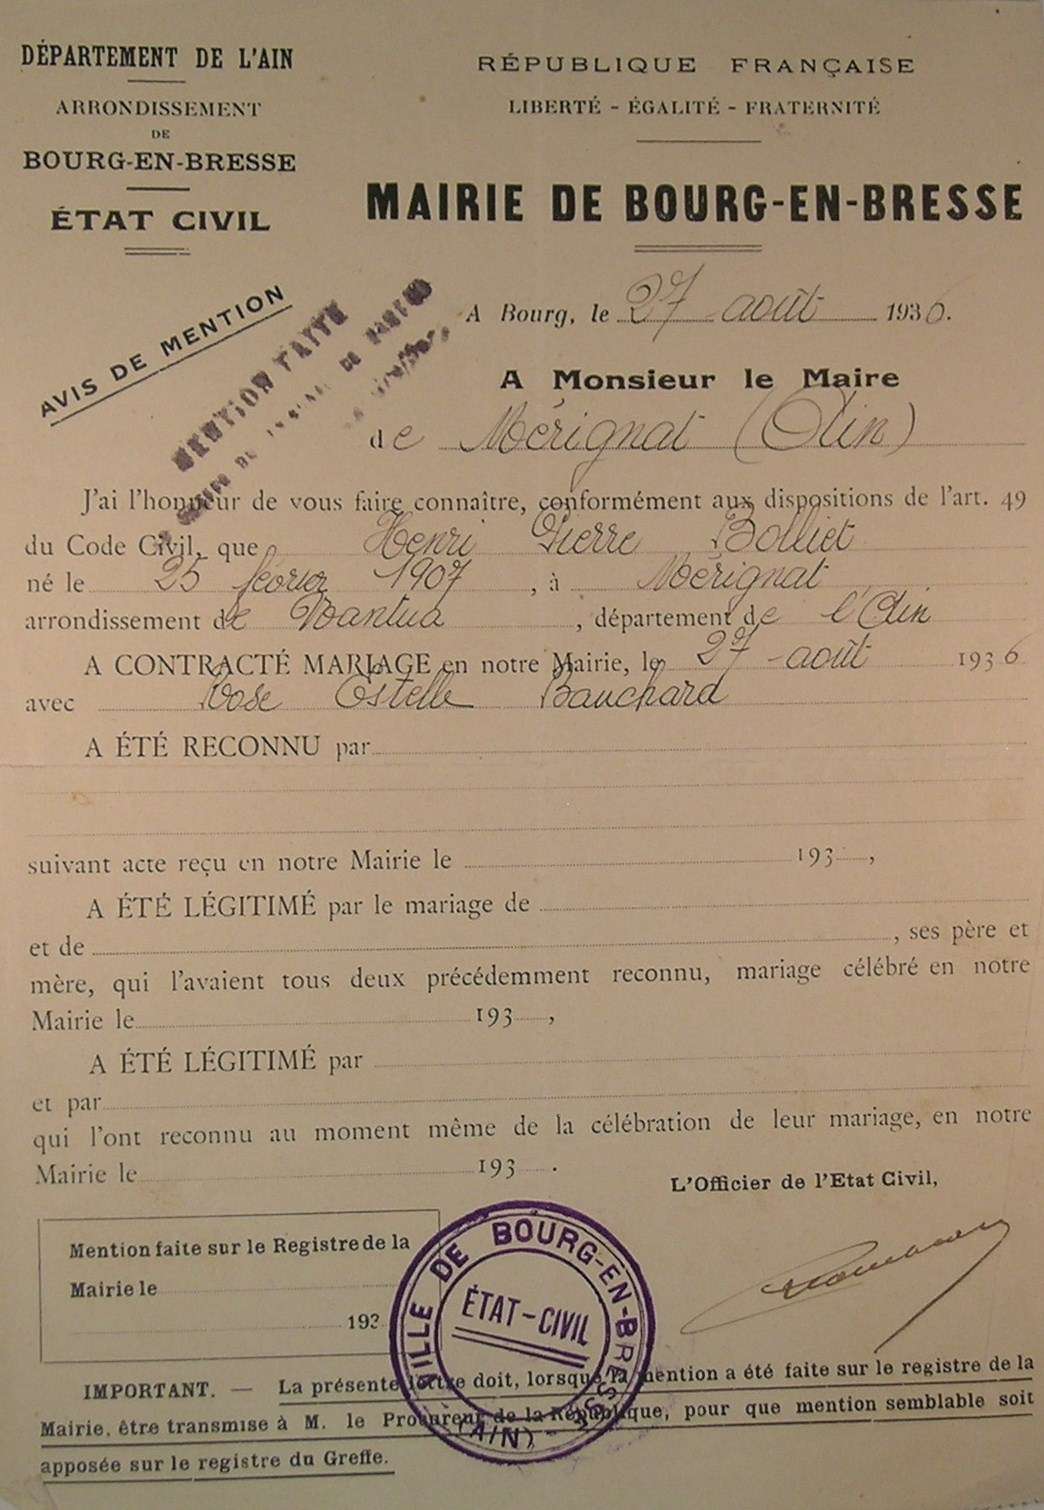 DÉPARTEMENT DE L'AIN
ARRONDISSEMENT
DE
BOURG-EN-BRESSE
ÉTAT CIVIL
RÉPUBLIQUE FRANÇAISE
LIBERTÉ - ÉGALITÉ - FRATERNITÉ
MAIRIE DE BOURG-EN-BRESSE
AVIS DE MENTION
MENTION FAITE
A Bourg, le 27 août 1936.
A Monsieur le Maire
de Mérignat (Ain)
J'ai l'honneur de vous faire connaître, conformément aux dispositions de l'art. 49
du Code Civil, que Henri Pierre Bolliet
né le 25 février 1907, à Mérignat
arrondissement de Nantua, département de l'Ain
A CONTRACTÉ MARIAGE en notre Mairie, le 27 août 1936
avec Rose Estelle Bauchard
A ÉTÉ RECONNU par
suivant acte reçu en notre Mairie le 193 ,
A ÉTÉ LÉGITIMÉ par le mariage de
et de , ses père et
mère, qui l'avaient tous deux précédemment reconnu, mariage célébré en notre
Mairie le 193 ,
A ÉTÉ LÉGITIMÉ par
et par
qui l'ont reconnu au moment même de la célébration de leur mariage, en notre
Mairie le 193 .
L'Officier de l'Etat Civil,
Mention faite sur le Registre de la
Mairie le
193
VILLE DE BOURG-EN-BRESSE (AIN)
ÉTAT-CIVIL
IMPORTANT. — La présente lettre doit, lorsque la mention a été faite sur le registre de la
Mairie, être transmise à M. le Procureur de la République, pour que mention semblable soit
apposée sur le registre du Greffe.